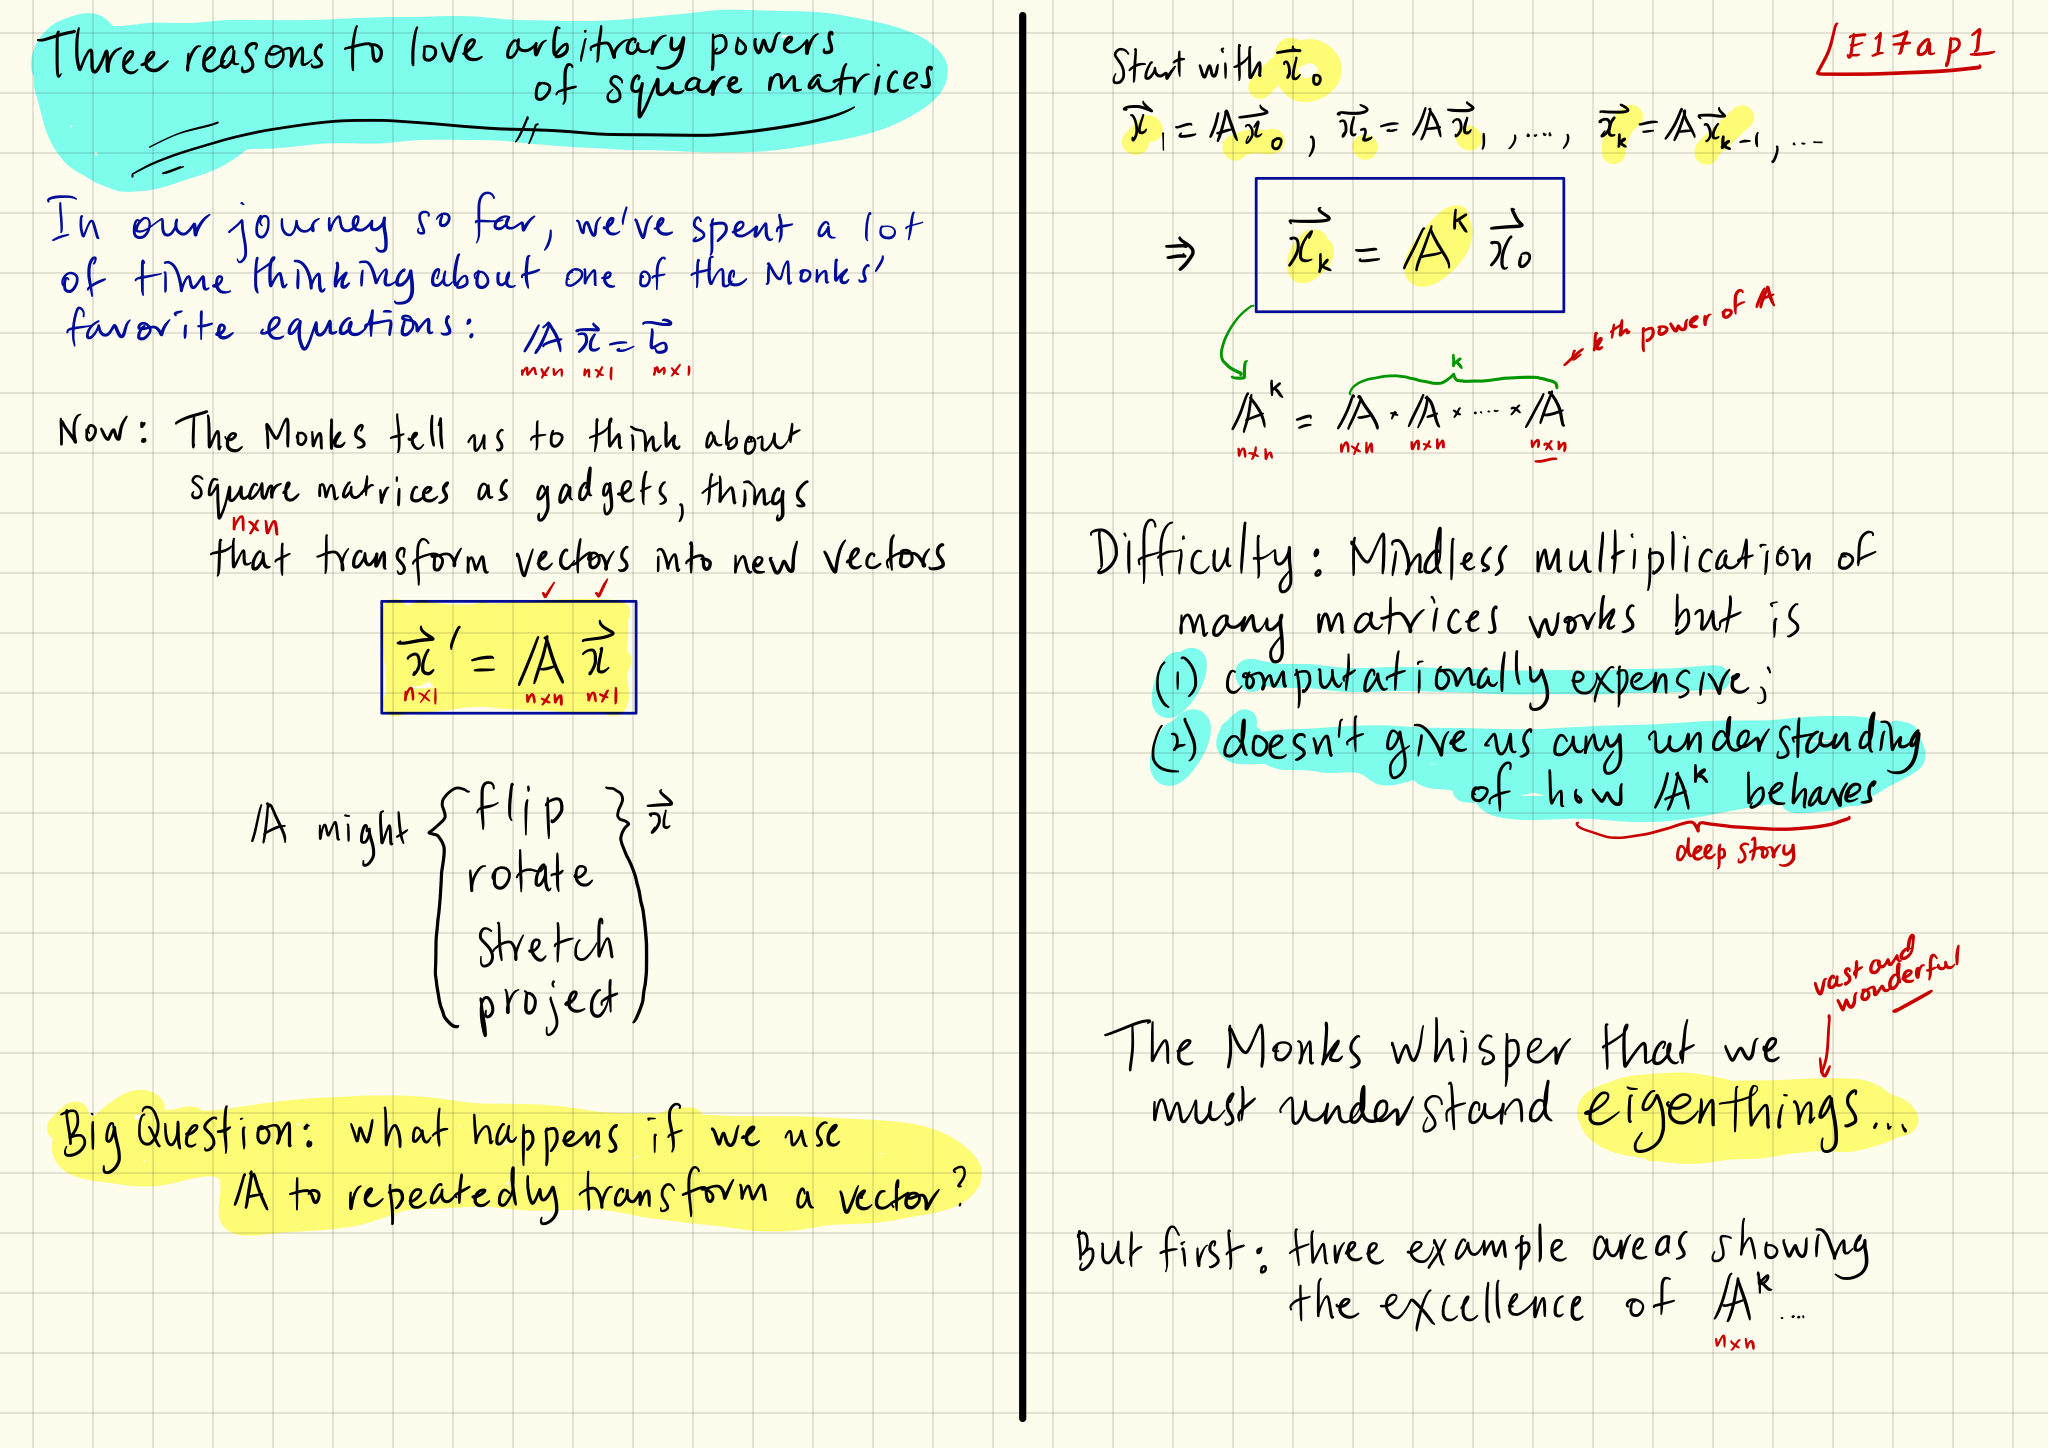 Three reasons to love arbitrary powers
of square matrices
In our journey so far, we've spent a lot
of time thinking about one of the Monks'
favorite equations: 𝔸 x⃗ = b⃗
m×n n×1 m×1
Now: The Monks tell us to think about
square matrices as gadgets, things
n×n
that transform vectors into new vectors
✓ ✓
x⃗' = 𝔸 x⃗
n×1 n×n n×1
𝔸 might { flip } x⃗
rotate
stretch
project
Big Question: what happens if we use
𝔸 to repeatedly transform a vector?
E17a p1
Start with x⃗₀
x⃗₁ = 𝔸x⃗₀, x⃗₂ = 𝔸x⃗₁, ...., x⃗ₖ = 𝔸x⃗ₖ₋₁, ...
⇒ x⃗ₖ = 𝔸ᵏ x⃗₀
kth power of 𝔸
k
𝔸ᵏ = 𝔸 × 𝔸 × ···· × 𝔸
n×n n×n n×n n×n
Difficulty: Mindless multiplication of
many matrices works but is
(1) computationally expensive;
(2) doesn't give us any understanding
of how 𝔸ᵏ behaves
deep story
vast and
wonderful
The Monks whisper that we
must understand eigenthings...
But first: three example areas showing
the excellence of 𝔸ᵏ....
n×n